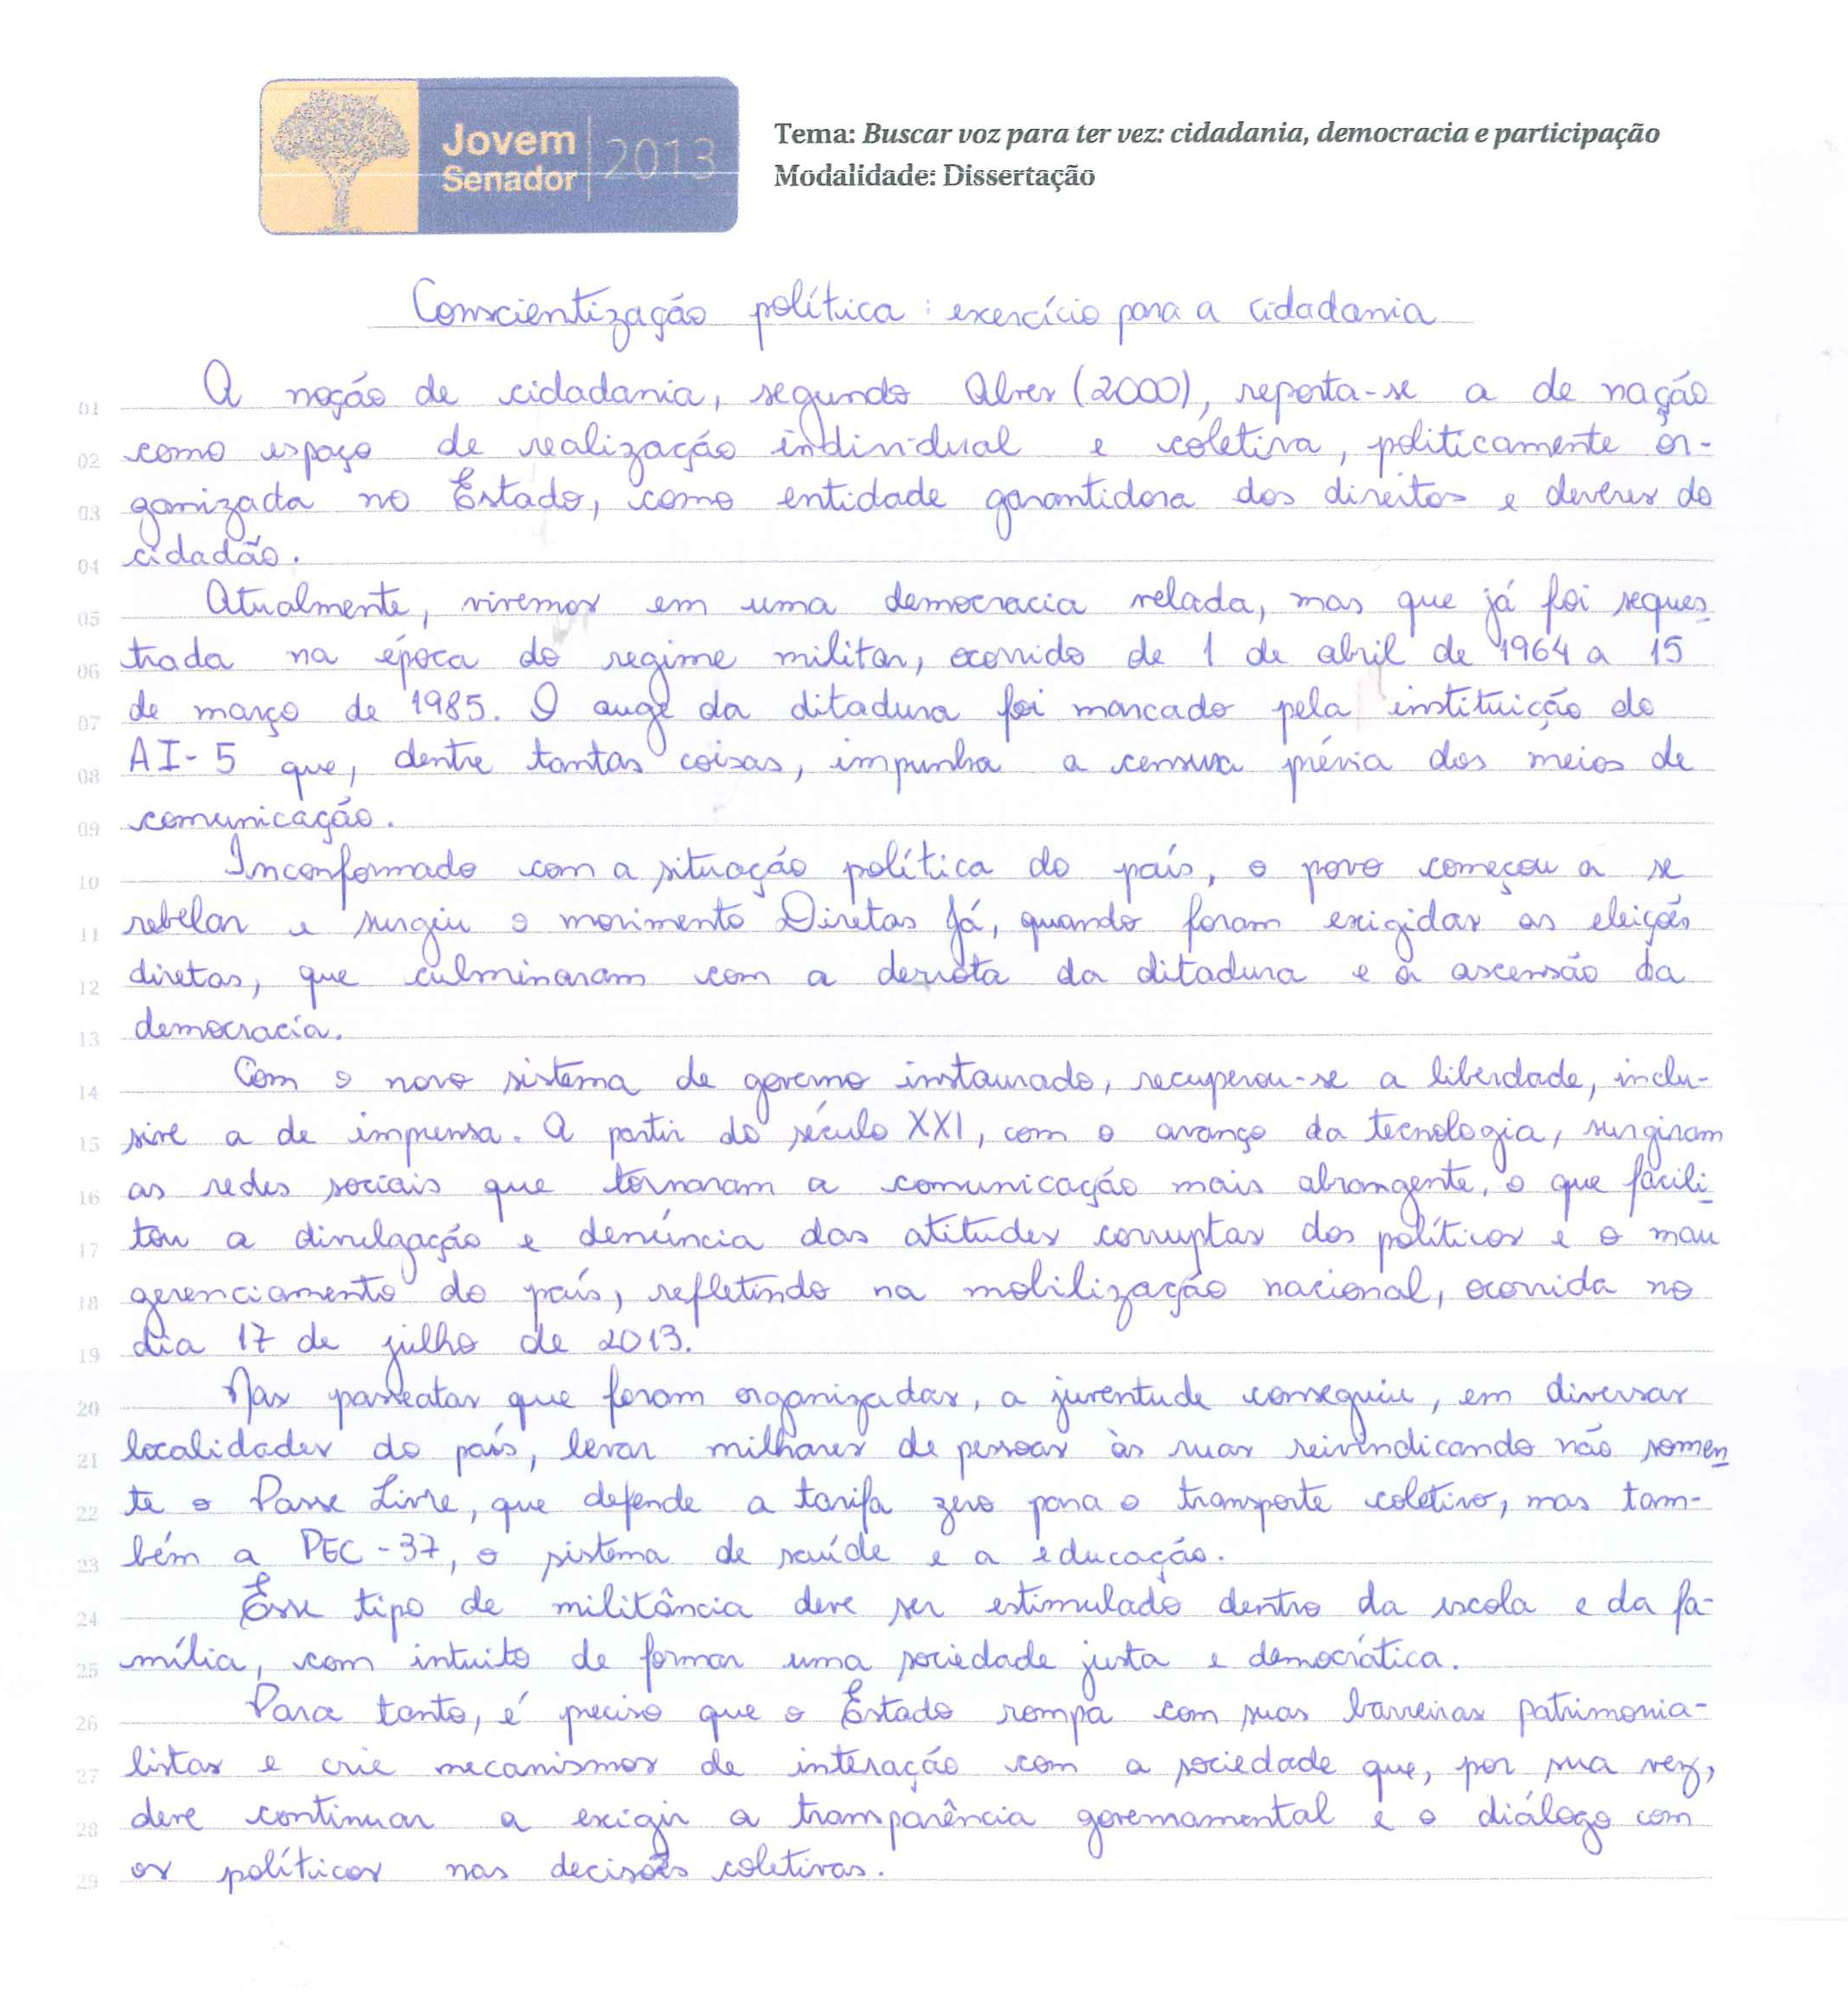 Jovem
Senador
2013
Tema: Buscar voz para ter vez: cidadania, democracia e participação
Modalidade: Dissertação
Conscientização política: exercício para a cidadania
01 A noção de cidadania, segundo Alves (2000), reporta-se a de nação
02 como espaço de realização individual e coletiva, politicamente or-
03 ganizada no Estado, como entidade garantidora dos direitos e deveres do
04 cidadão.
05 Atualmente, vivemos em uma democracia velada, mas que já foi seques
06 trada na época do regime militar, ocorrido de 1 de abril de 1964 a 15
07 de março de 1985. O auge da ditadura foi marcado pela instituição do
08 AI-5 que, dentre tantas coisas, impunha a censura prévia dos meios de
09 comunicação.
10 Inconformado com a situação política do país, o povo começou a se
11 rebelar e surgiu o movimento Diretas Já, quando foram exigidas as eleições
12 diretas, que culminaram com a derrota da ditadura e a ascensão da
13 democracia.
14 Com o novo sistema de governo instaurado, recuperou-se a liberdade, inclu-
15 sive a de imprensa. A partir do século XXI, com o avanço da tecnologia, surgiram
16 as redes sociais que tornaram a comunicação mais abrangente, o que facili
17 tou a divulgação e denúncia das atitudes corruptas dos políticos e o mau
18 gerenciamento do país, refletindo na mobilização nacional, ocorrida no
19 dia 17 de julho de 2013.
20 Nas passeatas que foram organizadas, a juventude conseguiu, em diversas
21 localidades do país, levar milhares de pessoas às ruas reivindicando não somen
22 te o Passe Livre, que defende a tarifa zero para o transporte coletivo, mas tam-
23 bém a PEC-37, o sistema de saúde e a educação.
24 Esse tipo de militância deve ser estimulado dentro da escola e da fa-
25 mília, com intuito de formar uma sociedade justa e democrática.
26 Para tanto, é preciso que o Estado rompa com suas barreiras patrimonia-
27 listas e crie mecanismos de interação com a sociedade que, por sua vez,
28 deve continuar a exigir a transparência governamental e o diálogo com
29 os políticos nas decisões coletivas.